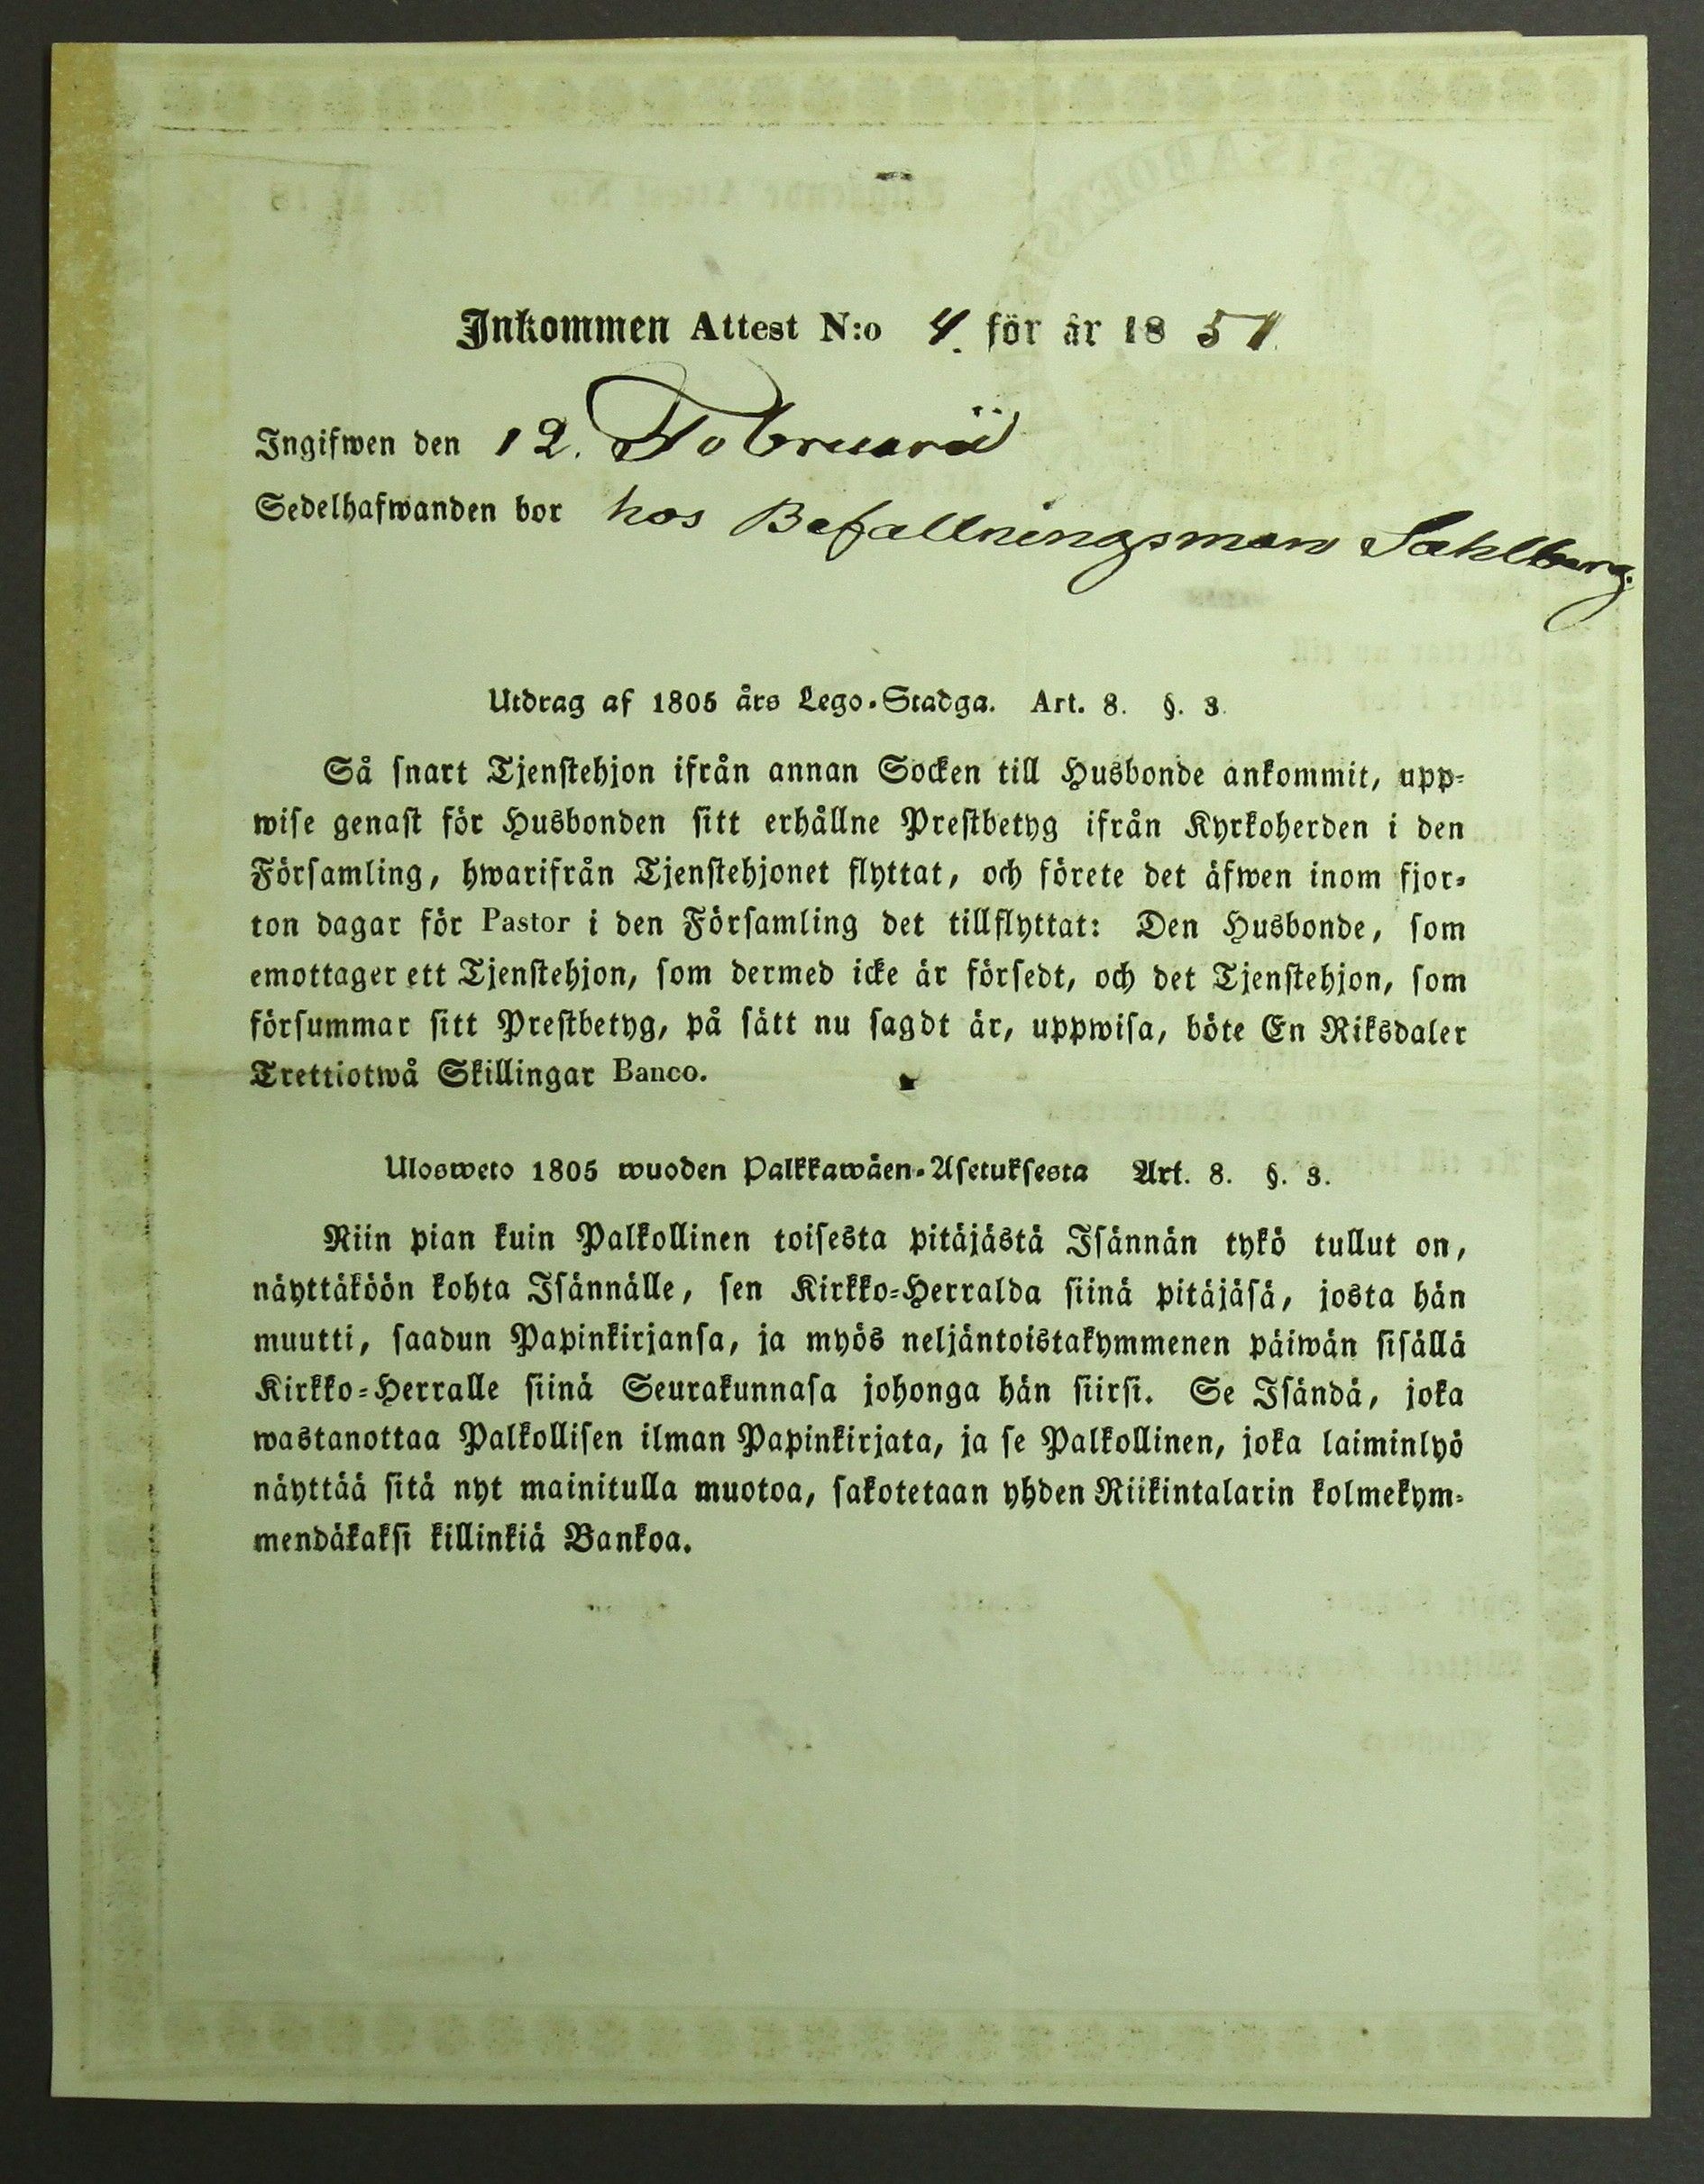 Inkommen Attest N:o 4. för år 1851.
Ingifwen den 12. Februarii
Sedelhafwanden bor hos Befallningsman Sahlberg.
Utdrag af 1805 års Lego-Stadga. Art. 8. §. 3.
Så snart Tjenstehjon ifrån annan Socken till Husbonde ankommit, upp-
wise genast för Husbonden sitt erhållne Prestbetyg ifrån Kyrkoherden i den
Församling, hwarifrån Tjenstehjonet flyttat, och förete det äfwen inom fjor-
ton dagar för Pastor i den Församling det tillflyttat: Den Husbonde, som
emottager ett Tjenstehjon, som dermed icke är försedt, och det Tjenstehjon, som
försummar sitt Prestbetyg, på sätt nu sagdt är, uppwisa, böte En Riksdaler
Trettiotwå Skillingar Banco.
Ulosweto 1805 wuoden Palkkawäen-Asetuksesta Art. 8. §. 3.
Niin pian kuin Palkollinen toisesta pitäjästä Isännän tykö tullut on,
näyttäköön kohta Isännälle, sen Kirkko-Herralda siinä pitäjäsä, josta hän
muutti, saadun Papinkirjansa, ja myös neljäntoistakymmenen päiwän sisällä
Kirkko-Herralle siinä Seurakunnasa johonga hän siirsi. Se Isändä, joka
wastanottaa Palkollisen ilman Papinkirjata, ja se Palkollinen, joka laiminlyö
näyttää sitä nyt mainitulla muotoa, sakotetaan yhden Riikintalarin kolmekym-
mendäkaksi killinkiä Bankoa.